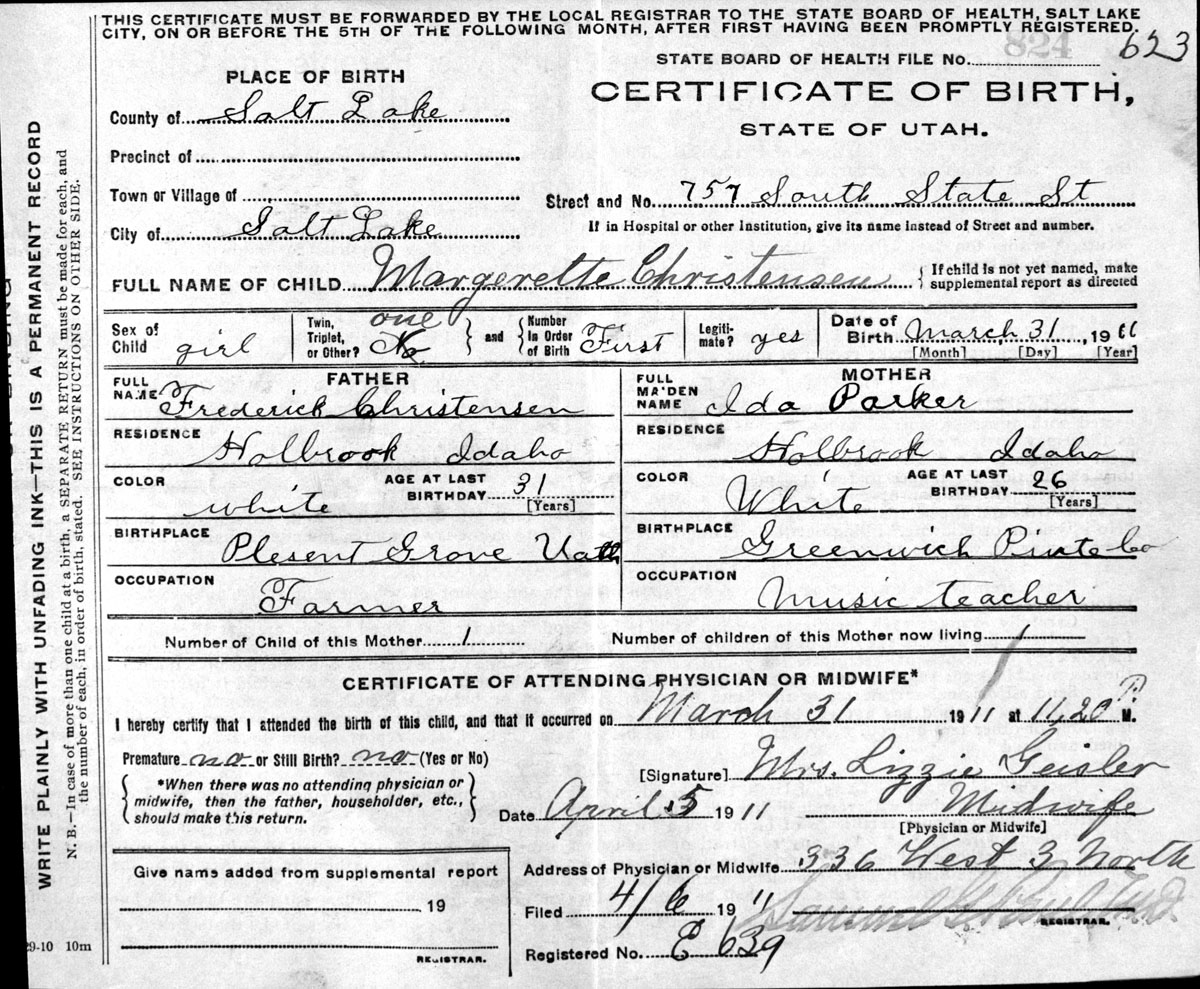 THIS CERTIFICATE MUST BE FORWARDED BY THE LOCAL REGISTRAR TO THE STATE BOARD OF HEALTH, SALT LAKE
CITY, ON OR BEFORE THE 5TH OF THE FOLLOWING MONTH, AFTER FIRST HAVING BEEN PROMPTLY REGISTERED.
824 623
STATE BOARD OF HEALTH FILE No.
PLACE OF BIRTH
CERTIFICATE OF BIRTH,
STATE OF UTAH.
County of Salt Lake
Precinct of
Town or Village of
Street and No. 757 South State St
City of Salt Lake
If in Hospital or other Institution, give its name instead of Street and number.
FULL NAME OF CHILD Margerette Christensen
If child is not yet named, make
supplemental report as directed
Sex of Child girl
Twin, Triplet, or Other? one No
and Number in Order of Birth First
Legitimate? yes
Date of Birth March 31, 1911
[Month] [Day] [Year]
FATHER
FULL NAME Frederick Christensen
RESIDENCE Holbrook Idaho
COLOR white AGE AT LAST BIRTHDAY 31 [Years]
BIRTHPLACE Plesent Grove Uath
OCCUPATION Farmer
MOTHER
FULL MA'DEN NAME Ida Parker
RESIDENCE Holbrook Idaho
COLOR White AGE AT LAST BIRTHDAY 26 [Years]
BIRTHPLACE Greenwich Piute Co
OCCUPATION Music teacher
Number of Child of this Mother 1
Number of children of this Mother now living 1
CERTIFICATE OF ATTENDING PHYSICIAN OR MIDWIFE*
I hereby certify that I attended the birth of this child, and that it occurred on March 31 1911 at 11,20 P M.
Premature no or Still Birth? no (Yes or No)
*When there was no attending physician or
midwife, then the father, householder, etc.,
should make this return.
[Signature] Mrs. Lizzie Geisler
Date April 5 1911 Midwife
[Physician or Midwife]
Address of Physician or Midwife 336 West 3 North
Give name added from supplemental report
19
REGISTRAR.
Filed 4/6 1911
REGISTRAR.
Registered No. E 639
29-10 10m
WRITE PLAINLY WITH UNFADING INK—THIS IS A PERMANENT RECORD
N. B.—In case of more than one child at a birth, a SEPARATE RETURN must be made for each, and
the number of each, in order of birth, stated. SEE INSTRUCTIONS ON OTHER SIDE.